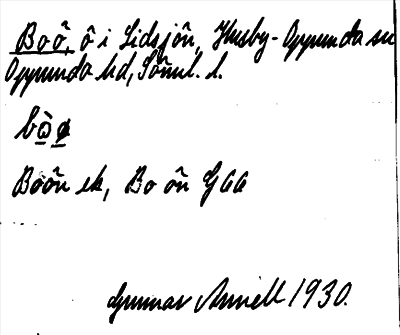 Boö, ö i Lidsjön, Husby-Oppunda sn
Oppunda hd, Söml. l.
bò̱ø̱
Boön ek, Bo ön GEA
Gunnar Annell 1930.